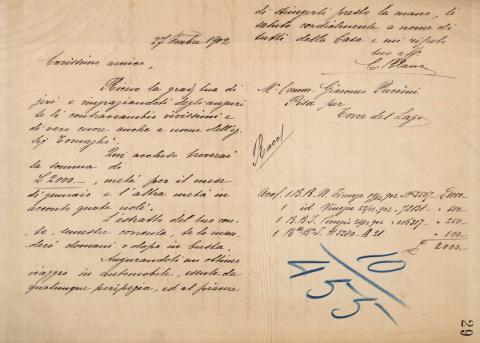 27 Xembre 1902
Carissimo amico,
Ricevo la grad/ tua di
jeri e ringraziandoti degli augurî
te li contraccambio vivissimi e
di vero cuore anche a nome dell'eg.
Sig. Tornaghi.
Qui accluso troverai
la somma di
£ 2000.— metà per il mese
di gennaio e l'altra metà in
acconto quote noli.
L'estratto del tuo con
to, semestre corrente, te lo man
derò domani o dopo in busta.
Augurandoti un ottimo
viaggio in automobile, esente da
qualunque peripezia, ed al piacere
di stringerti presto la mano, ti
saluto cordialmente a nome di
tutti della Casa e mi ripeto
tuo aff.
C. Blanc
Mo Comm. Giacomo Puccini
Pisa per
Torre del Lago
Racc/
Accl. 1 B. B. N. Firenze
1 id
1 B.B.S. - 250
1 - 100
£ 2000.-
10/455
29